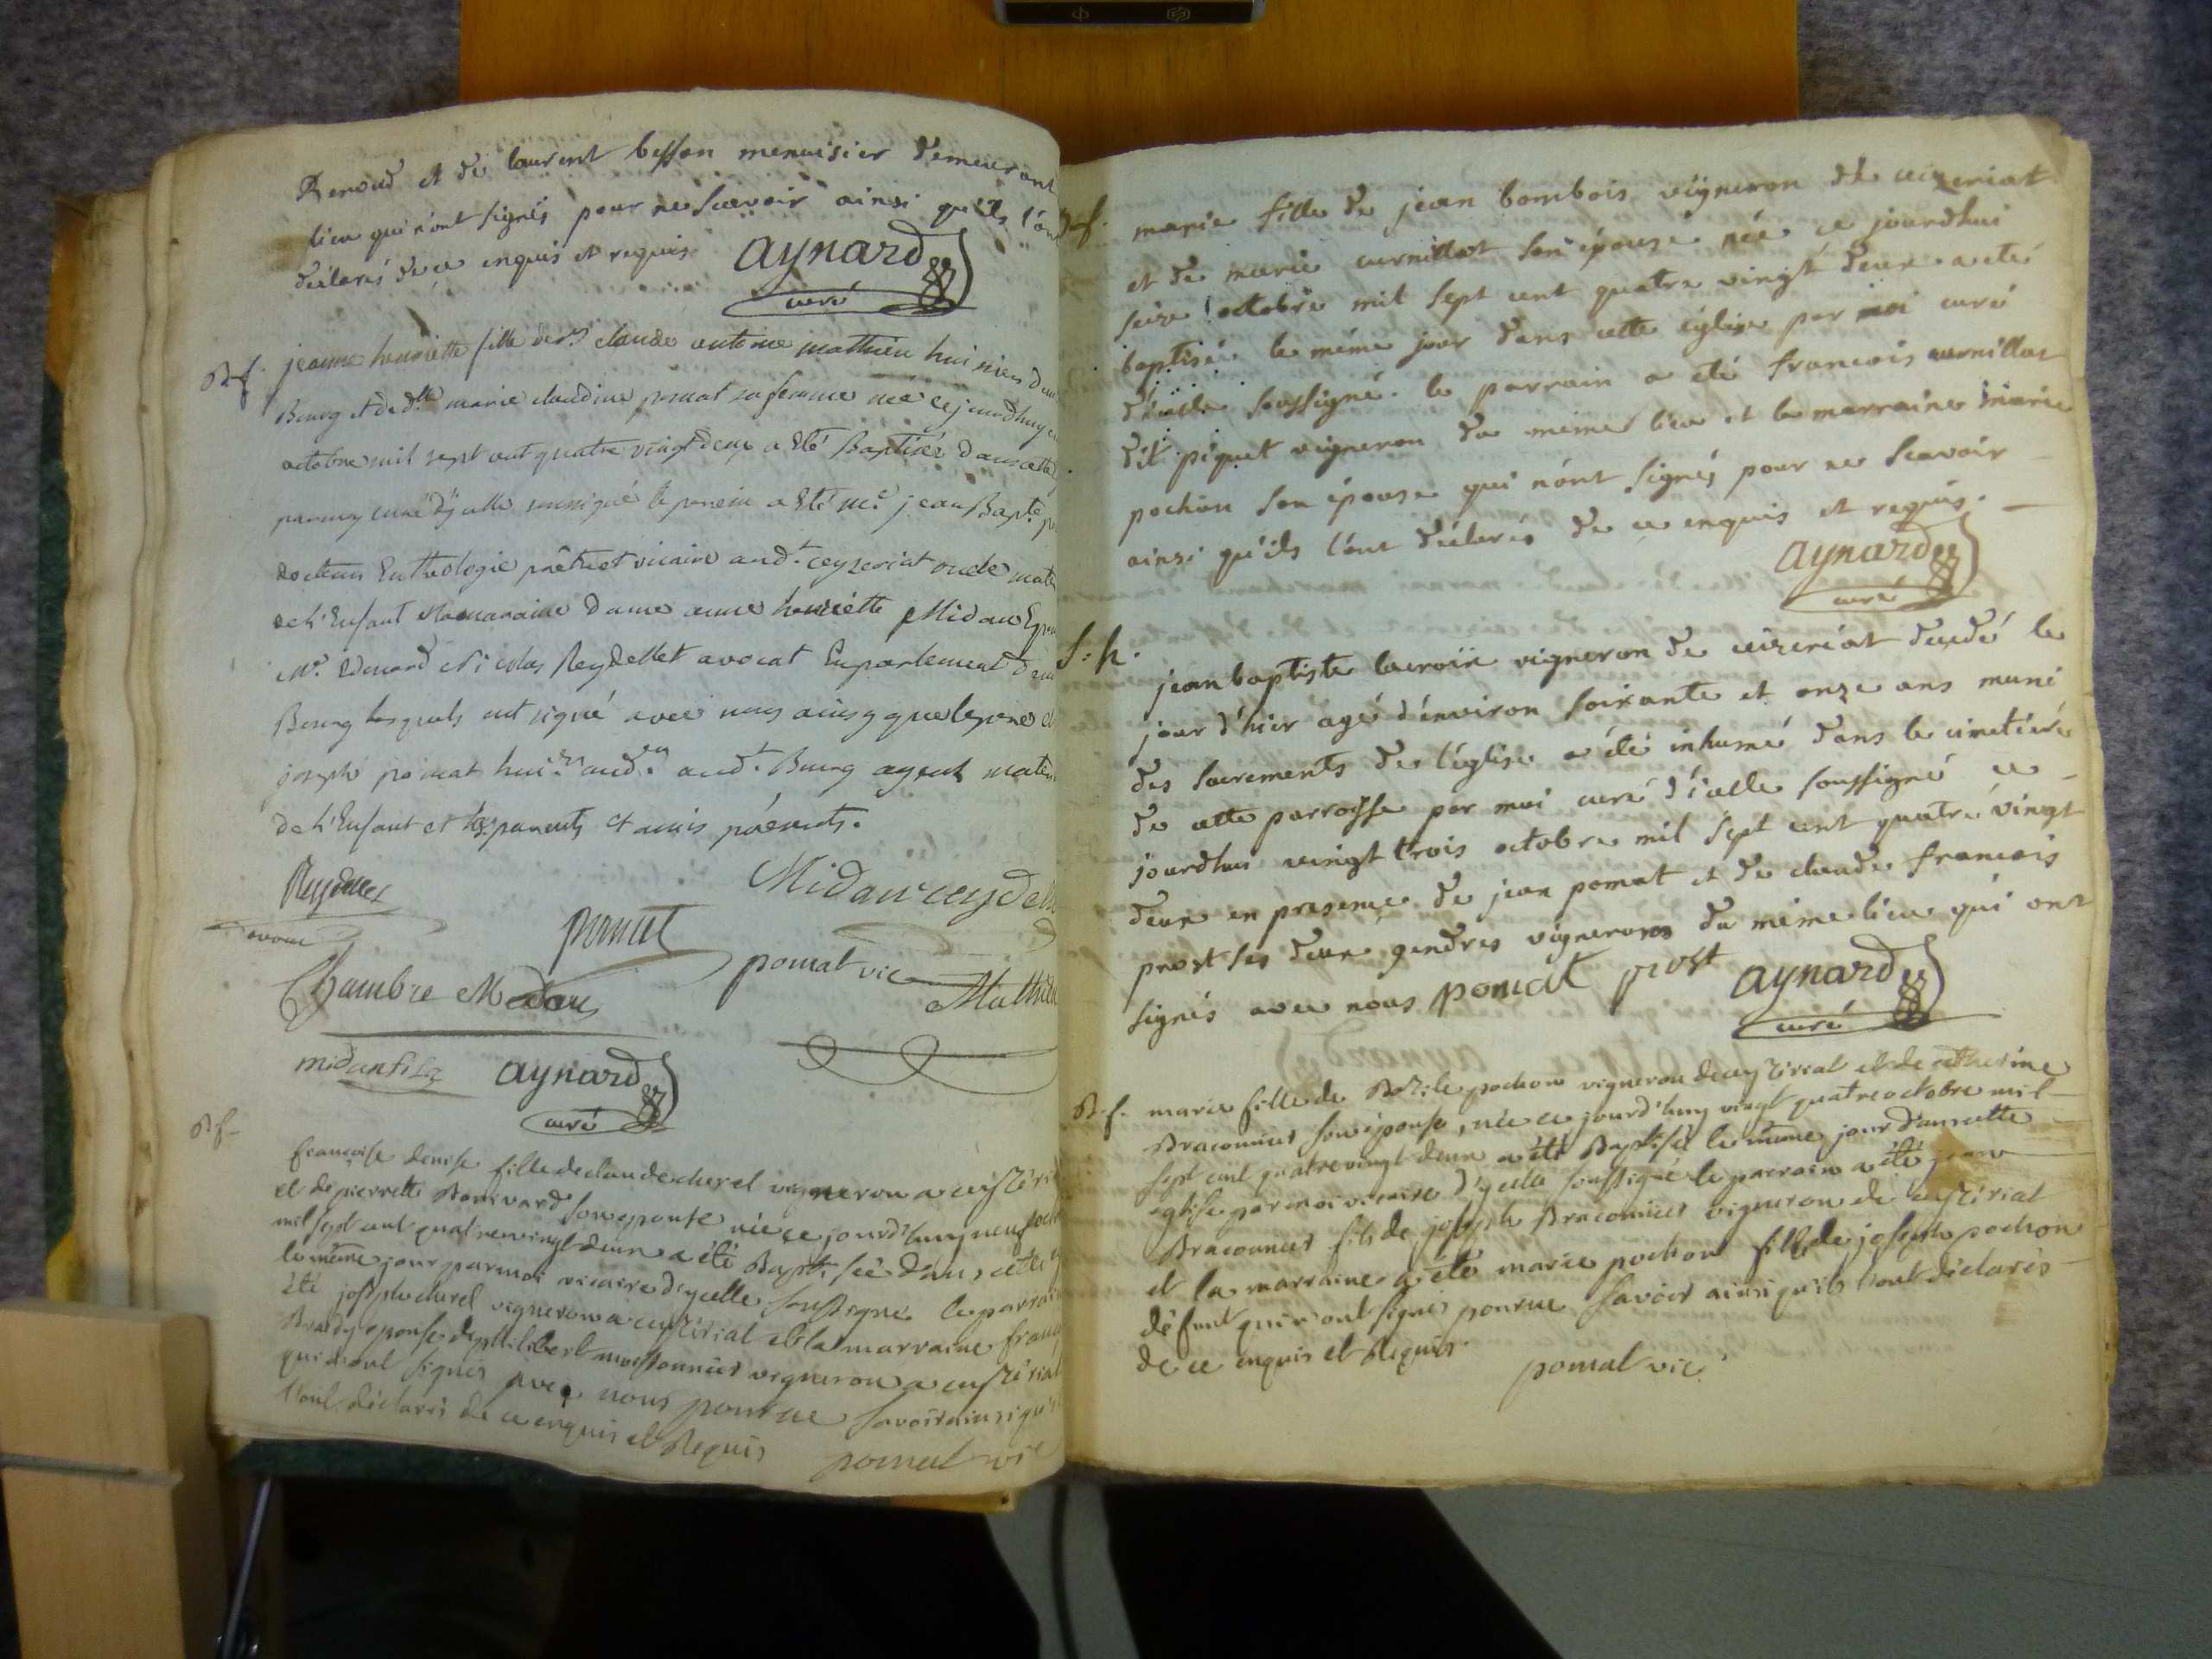 Renoud et de laurent besson menuisier demeurant
lieu qui n'ont signés pour ne scavoir ainsi qu'ils l'ont
déclarés de ce enquis et requis aynard
curé
B-f. jeanne henriette fille de sr claude antoine mathieu huissier
Bourg et de dlle marie claudine pomat sa femme née cejourdhuy
octobre mil sept cent quatre vingt deux a Eté Baptisée dans cette
par moy curé dycelle soussigné le parein a Eté Mr. jean Bapte
docteur En theologie prêtre et vicaire aud.t ceyzeriat oncle
de L'Enfant et la maraine dame anne henriette Midan
Mr. Edouard Nicolas Reydellet avocat En parlement
Bourg lesquels ont signé avec nous ainsy que le pere
joseph pomat aud.t Bourg
de L'Enfant et les parents et amis présents.
Reydellet
avocat
Midan reydellet
pomat
pomat vic
Chambre Midan
Mathieu
midan filz aynard
curé
B f-
francoise denise fille de claude churel vigneron a
et de pierrette Bonivard son epouse née ce jourd'huy neuf
mil sept cent quatre vingt deux a été Baptisée dans cette
le même jour par moi vicaire d'ycelle soussigné le parrain
été joseph churel vigneron a ceyzériat et la marraine
epouse de philibert moissonnier vigneron a ceyzériat
qui n'ont signés avec nous pour ne savoir ainsi qu'ils
l'ont déclarés de ce enquis et Requis pomat vic
B-f. marie fille de jean bombois vigneron de ceizeriat
et de marie curnillat son épouse née ce jourdhui
seize octobre mil sept cent quatre vingt deux a eté
baptisée le même jour dans cette église par moi curé
d'icelle soussigné. le parrain a eté francois curnillat
dit piquet vigneron du même lieu et la marraine marie
pochon son épouse qui n'ont signés pour ne scavoir
ainsi qu'ils l'ont déclarés de ce enquis et requis.
aynard
curé
S: h.
jean baptiste lacroix vigneron de ceizeriat décédé le
jour d'hier agé d'environ soixante et onze ans muni
des sacrements de l'église a été inhumé dans le cimetiére
de cette parroisse par moi curé d'icelle soussigné ce
jourdhui vingt trois octobre mil sept cent quatre vingt
deux en presence de jean pomat et de claude francois
prost ses deux gendres vignerons du même lieu qui ont
signés avec nous pomat prost aynard
curé
B-f. marie fille de Bazile pochon vigneron de ceyzériat et de catherine
Braconnier son épouse, née ce jourd'huy vingt quatre octobre mil
sept cent quatre vingt deux a été Baptisée le même jour dans cette
eglise par moi vicaire d'ycelle soussigné le parrain a été jean
Braconnier fils de joseph Braconnier vigneron de ceyzériat
et la marraine a été marie pochon fille de joseph pochon
défunt qui n'ont signés pour ne savoir ainsi qu'ils l'ont déclarés
de ce enquis et Requis.
pomat vic.